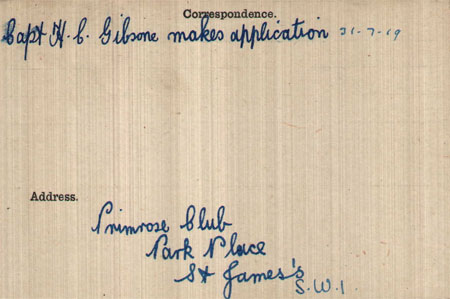 Correspondence.
Capt H. C. Gibsone makes application 31-7-19
Address.
Primrose Club
Park Place
St James's
S.W.1.